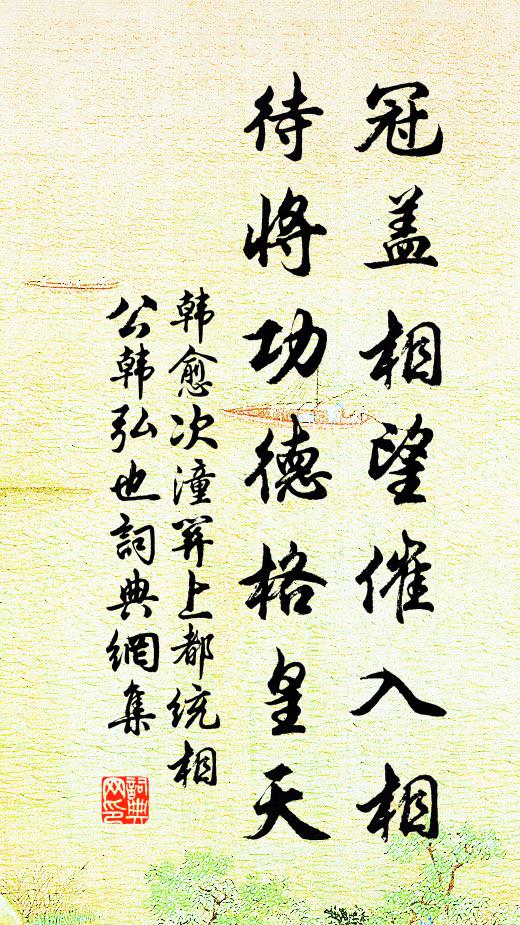 冠盖相望催入相
待将功德格皇天
韩愈次潼关上都统相
公韩弘也詞典網集
詞典网印